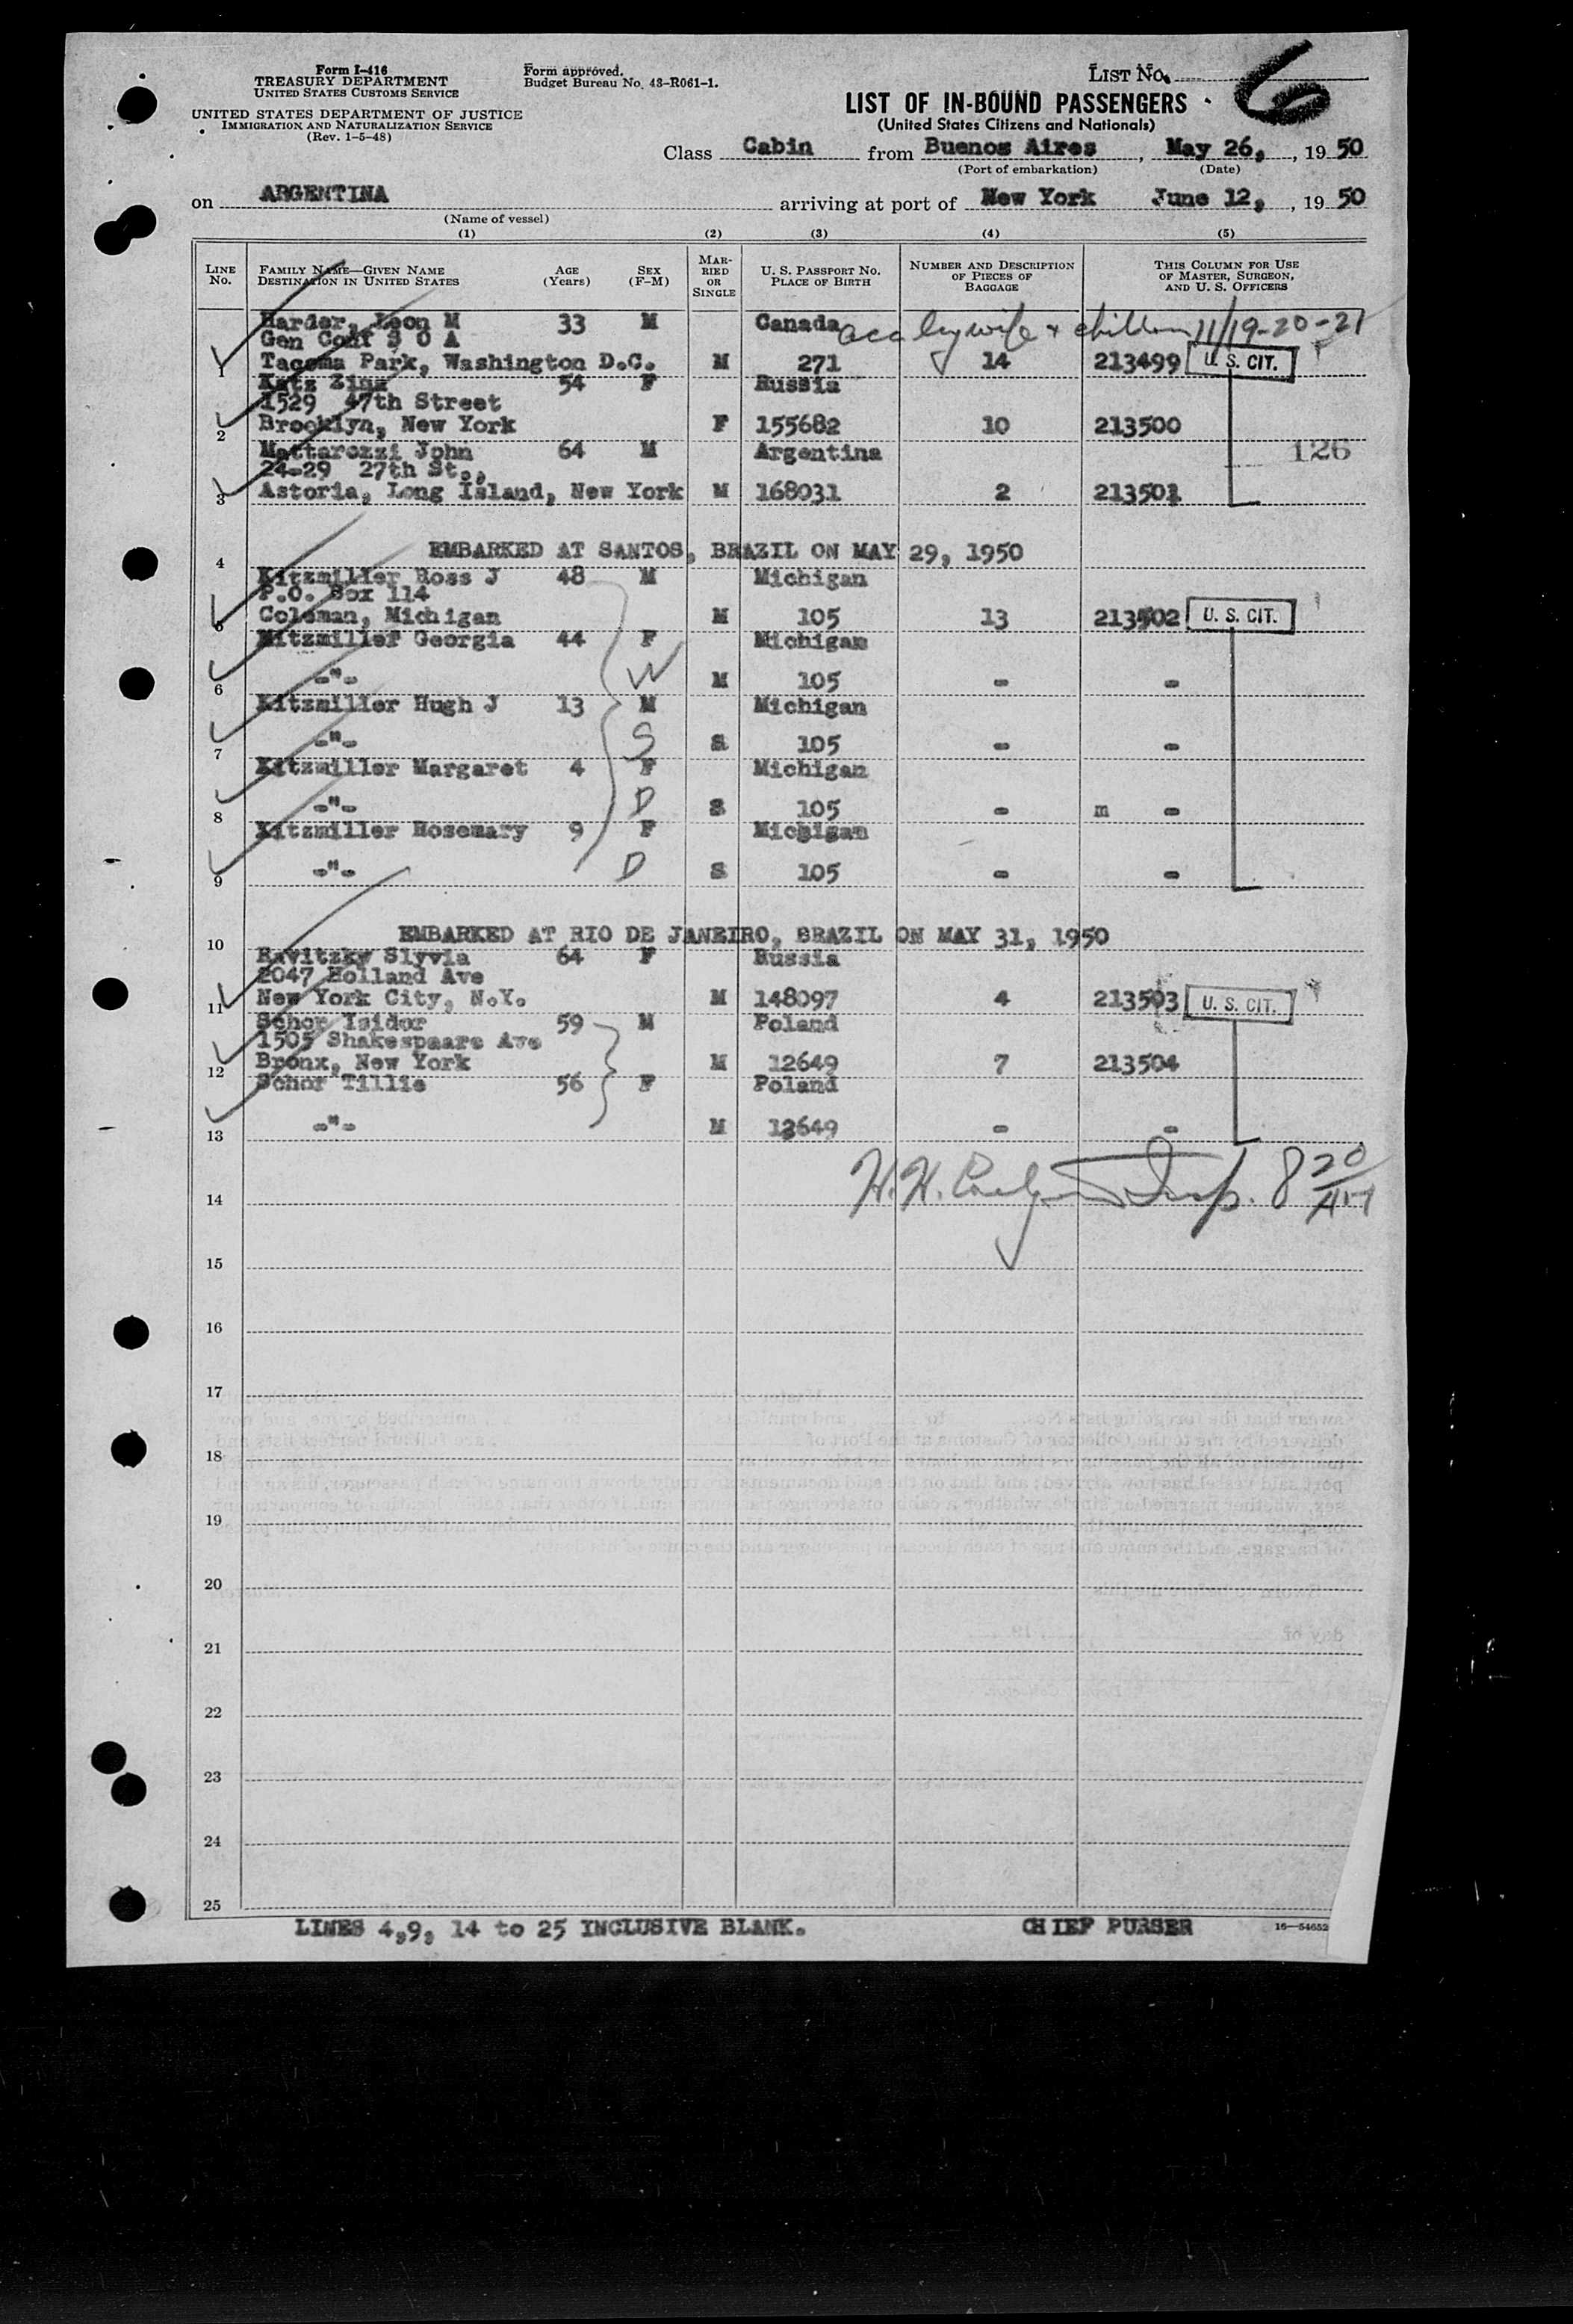 Form I-416
TREASURY DEPARTMENT
UNITED STATES CUSTOMS SERVICE
UNITED STATES DEPARTMENT OF JUSTICE
IMMIGRATION AND NATURALIZATION SERVICE
(Rev. 1-5-48)
Form approved.
Budget Bureau No. 43-R061-1.
LIST NO. 6
LIST OF IN-BOUND PASSENGERS
(United States Citizens and Nationals)
Class Cabin from Buenos Aires, May 26, 1950
(Port of embarkation) (Date)
on ARGENTINA arriving at port of New York June 12, 1950
(Name of vessel)
(1) (2) (3) (4) (5)
LINE NO. FAMILY NAME—GIVEN NAME DESTINATION IN UNITED STATES AGE (Years) SEX (F-M) MARRIED OR SINGLE U. S. PASSPORT NO. PLACE OF BIRTH NUMBER AND DESCRIPTION OF PIECES OF BAGGAGE THIS COLUMN FOR USE OF MASTER, SURGEON, AND U. S. OFFICERS
Harder, Leon M 33 M Canada acc by wife + children 11/19-20-21
Gen Conf S O A
1 Tacoma Park, Washington D.C. M 271 14 213499 U. S. CIT.
Katz Zina 54 F Russia
1529 47th Street
2 Brooklyn, New York F 155682 10 213500
Mattarozzi John 64 M Argentina 126
24-29 27th St.,
3 Astoria, Long Island, New York M 168031 2 213501
4 EMBARKED AT SANTOS, BRAZIL ON MAY 29, 1950
Kitzmiller Ross J 48 M Michigan
P.O. Box 114
5 Coleman, Michigan M 105 13 213502 U. S. CIT.
Kitzmiller Georgia 44 F Michigan
6 -"- W M 105 - -
Kitzmiller Hugh J 13 M Michigan
7 -"- S S 105 - -
Kitzmiller Margaret 4 F Michigan
8 -"- D S 105 - m -
Kitzmiller Rosemary 9 F Michigan
9 -"- D S 105 - -
10 EMBARKED AT RIO DE JANEIRO, BRAZIL ON MAY 31, 1950
Ravitzky Slyvia 64 F Russia
2047 Holland Ave
11 New York City, N.Y. M 148097 4 213503 U. S. CIT.
Schor Isidor 59 M Poland
1505 Shakespaare Ave
12 Bronx, New York M 12649 7 213504
Schor Tillie 56 F Poland
13 -"- M 12649 - -
14 H.H. Insp. 8 20/AM
15
16
17
18
19
20
21
22
23
24
25
LINES 4,9, 14 to 25 INCLUSIVE BLANK. CHIEF PURSER 16—54652